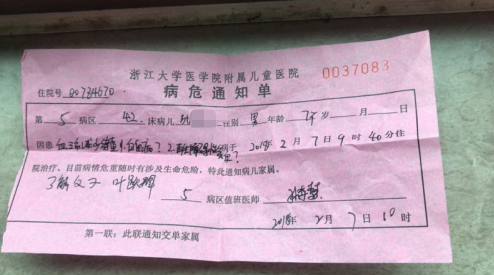 浙江大学医学院附属儿童医院
病危通知单 0037083
住院号
第 5 病区 42 床病儿 性别 男 年龄 7岁 月 日
因患 病于 2018年 2月 7日 9时 40分住
院治疗、目前病情危重随时有涉及生命危险,特此通知病儿家属。
了解 父子
5 病区值班医师
2018年 2月 7日 10时
第一联:此联通知交单家属